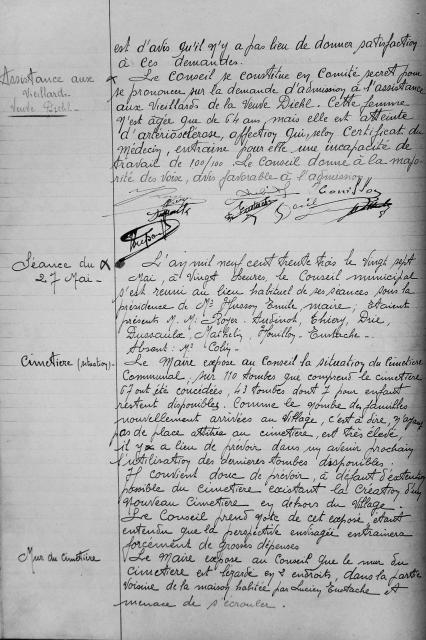 est d'avis qu'il n'y a pas lieu de donner satisfaction
à ces demandes.
Assistance aux
Vieillards
Veuve Diehl.
Le Conseil se constitue en Comité secret pour
se prononcer sur la demande d'admission à l'assistance
aux Vieillards de la Veuve Diehl. Cette femme
n'est âgée que de 64 ans, mais elle est atteinte
d'artériosclérose, affection qui, selon Certificat du
Médecin, entraine pour elle une incapacité de
travail de 100/100. Le Conseil donne à la majo-
rité des voix, avis favorable à l'admission.
Séance du
27 Mai -
L'an mil neuf cent trente trois le vingt sept
Mai à vingt heures, le Conseil municipal
s'est réuni au lieu habituel de ses séances sous la
présidence de Mr Husson Emile maire. Etaient
présents M. M. Royer, Aubinot, Thiery,
Mathelin, Houillon, Eustache -
Absent: Mr
Cimetière (situation) -
Le Maire expose au Conseil la situation du Cimetière
Communal, sur 110 tombes que comprend le cimetière
67 ont été concédées, 43 tombes dont 7 pour enfant
restent disponibles. Comme le nombre des familles
nouvellement arrivées au Village, c'est à dire, n'ayant
pas de place attitrée au cimetière, est très élevé,
il y a lieu de prévoir dans un avenir prochain
l'utilisation des dernières tombes disponibles.
Il convient donc de prévoir, à défaut d'extention
possible du cimetière existant la Création d'un
nouveau Cimetière en dehors du Village.
Le Conseil prend note de cet exposé, étant
entendu que la perspective envisagée entrainera
forcément de grosses dépenses
Mur du Cimetière
Le Maire expose au Conseil que le mur du
Cimetière est lézardé en 2 endroits, dans la partie
voisine de la maison habitée par Lucien Eustache et
menace de s'écrouler.